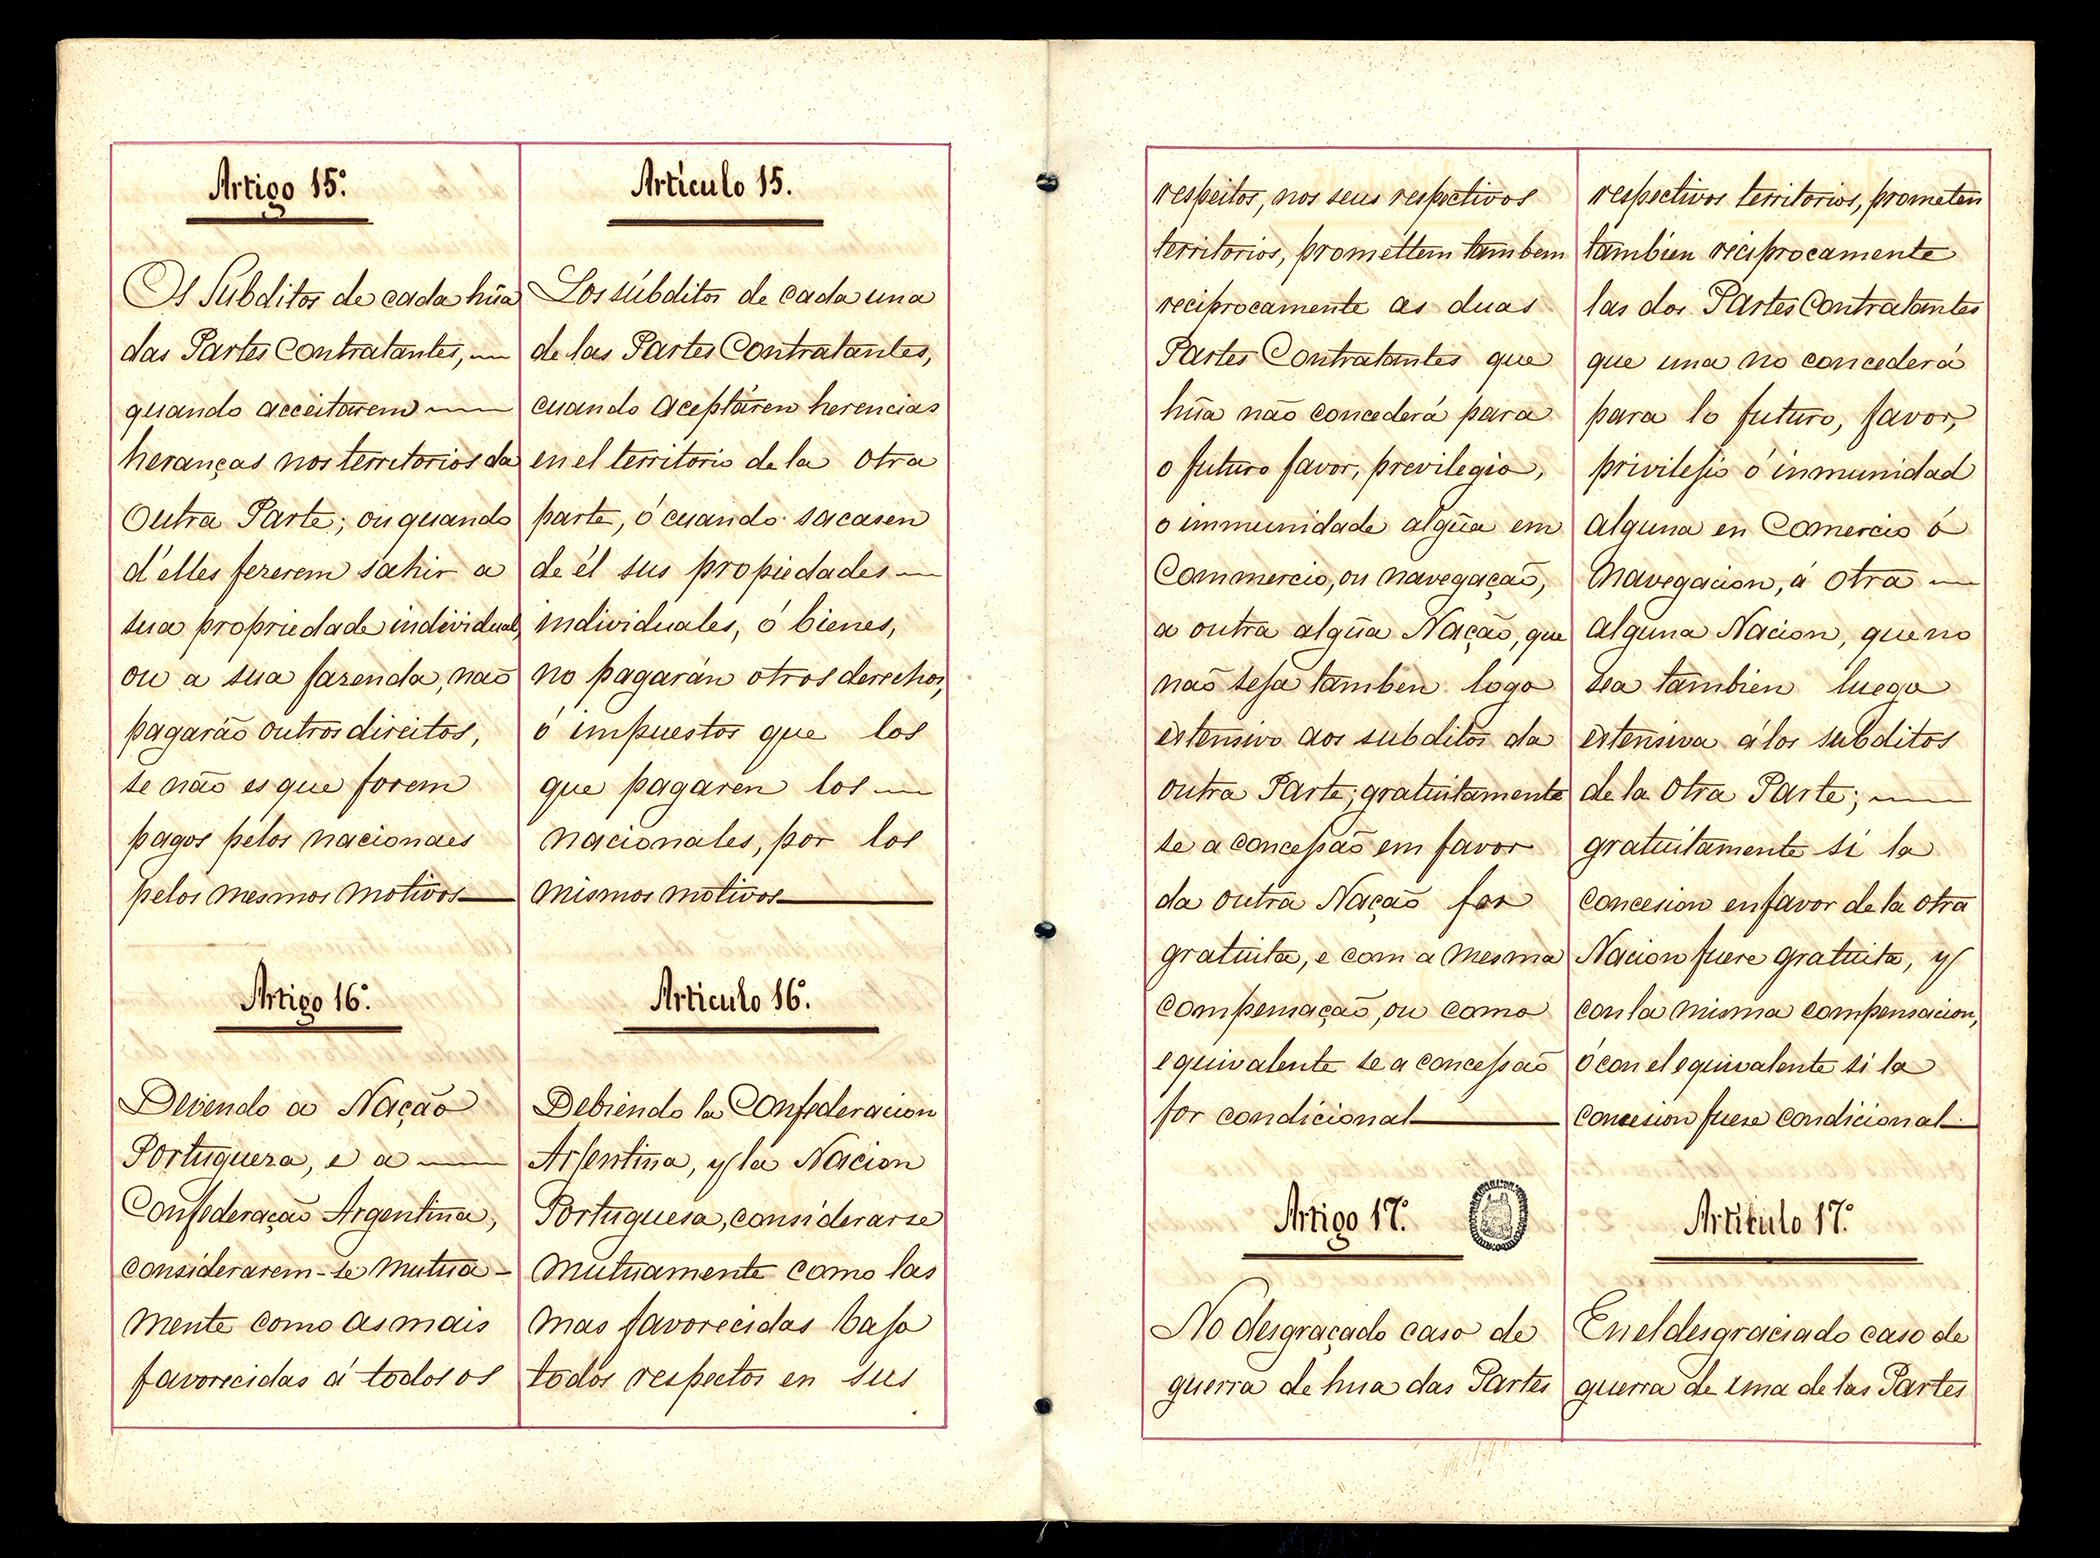 Artigo 15º.
Os Subditos de cada hũa
das Partes Contratantes,
quando acceitarem
heranças nos territorios da
Outra Parte; ou quando
d'elles fezerem sahir a
sua propriedade individual,
ou a sua fazenda, não
pagarão outros direitos,
se não es que forem
pagos pelos nacionaes
pelos mesmos motivos
Artigo 16º.
Devendo a Nação
Portugueza, e a
Confederação Argentina,
considerarem-se mutua-
mente como as mais
favorecidas á todos os
Artículo 15.
Los súbditos de cada una
de las Partes Contratantes,
cuando aceptáren herencias
en el territorio de la otra
parte, ó cuando sacasen
de él sus propiedades
individuales, ó bienes,
no pagarán otros derechos,
ó impuestos que los
que pagaren los
nacionales, por los
mismos motivos
Articulo 16º.
Debiendo la Confederacion
Arjentina, y la Nacion
Portuguesa, considerarse
mutuamente como las
mas favorecidas bajo
todos respectos en sus
respeitos, nos seus respectivos
territorios, promettem tambem
reciprocamente as duas
Partes Contratantes que
hũa não concederá para
o futuro favor, previlegio,
o immunidade algũa em
Commercio, ou navegação,
a outra algũa Nação, que
não seja tamben logo
extensivo aos subditos da
outra Parte; gratuitamente
se a concessão em favor
da outra Nação for
gratuita, e com a mesma
compensação, ou como
equivalente se a concessão
for condicional
Artigo 17º.
No desgraçado caso de
guerra de hua das Partes
respectivos territorios, prometen
tambien reciprocamente
las dos Partes Contratantes
que una no concederá
para lo futuro, favor,
privilejio ó inmunidad
alguna en Comercio ó
Navegacion, á otra
alguna Nacion, que no
sea tambien luego
estensiva á los subditos
de la Otra Parte;
gratuitamente si la
concesion en favor de la otra
Nacion fuere gratuita, y
con la misma compensacion,
ó con el equivalente si la
concesion fuese condicional
Artítulo 17º.
En el desgraciado caso de
guerra de una de las Partes